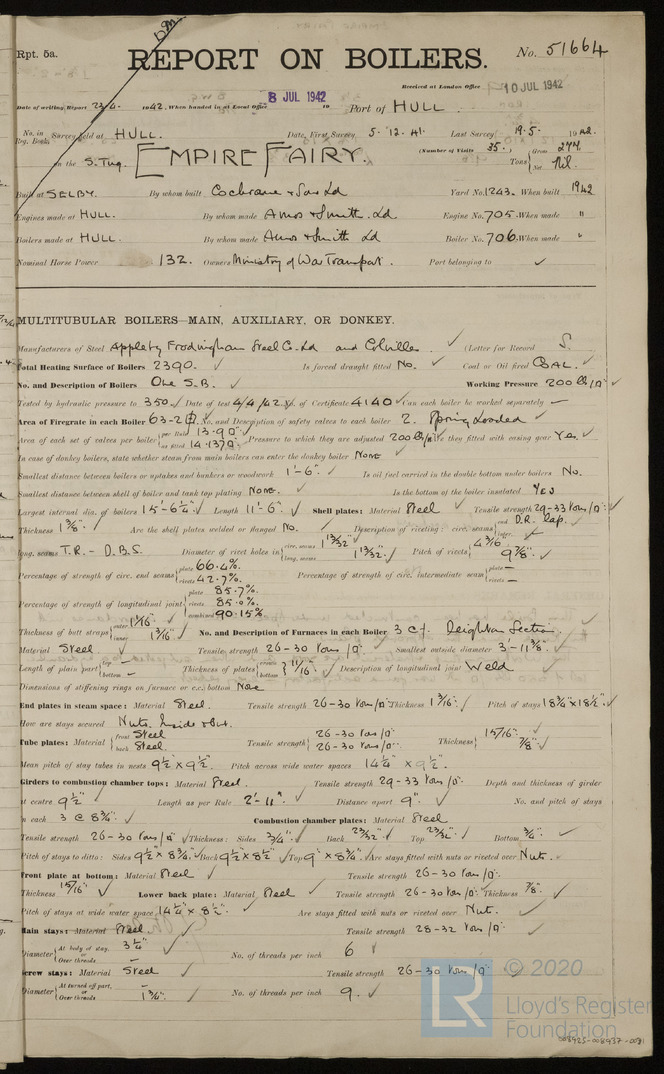 Rpt. 5a. REPORT ON BOILERS. No. 51664
Received at London Office 10 JUL 1942
Date of writing Report 23.6. 1942. When handed in at Local Office 8 JUL 1942 19 Port of HULL.
No. in Reg. Book. Survey held at HULL. Date, First Survey 5. '12. 41. Last Survey 19.5. 1942.
(Number of Visits 35.) Gross 274
on the S. Tug. EMPIRE FAIRY. Tons Net Nil.
Built at SELBY. By whom built Cochrane & Sons Ld Yard No. 1243. When built 1942
Engines made at HULL. By whom made Amos & Smith Ld Engine No. 705. When made "
Boilers made at HULL. By whom made Amos & Smith Ld Boiler No. 706. When made "
Nominal Horse Power 132. Owners Ministry of War Transport. Port belonging to ✓
MULTITUBULAR BOILERS—MAIN, AUXILIARY, OR DONKEY.
Manufacturers of Steel Appleby Frodingham Steel Co. Ld and Colvilles. ✓ (Letter for Record S.
Total Heating Surface of Boilers 2390. ✓ Is forced draught fitted No. ✓ Coal or Oil fired COAL. ✓
No. and Description of Boilers One S.B. ✓ Working Pressure 200 lb/□" ✓
Tested by hydraulic pressure to 350 ✓ Date of test 4/4/42. No. of Certificate 4140 ✓ Can each boiler be worked separately —
Area of Firegrate in each Boiler 63.2 □. No. and Description of safety valves to each boiler 2. Spring Loaded ✓
Area of each set of valves per boiler per Rule 13.90 as fitted 14.137 Pressure to which they are adjusted 200 lb/□" Are they fitted with easing gear Yes ✓
In case of donkey boilers, state whether steam from main boilers can enter the donkey boiler NONE ✓
Smallest distance between boilers or uptakes and bunkers or woodwork 1'-6". ✓ Is oil fuel carried in the double bottom under boilers No.
Smallest distance between shell of boiler and tank top plating NONE. ✓ Is the bottom of the boiler insulated YES
Largest internal dia. of boilers 15'-6¼" ✓ Length 11'-6" ✓ Shell plates: Material Steel ✓ Tensile strength 29-33 Tons/□" ✓
Thickness 1⅜" ✓ Are the shell plates welded or flanged No. ✓ Description of riveting: circ. seams end D.R. lap. inter. ✓
long. seams T.R. - D.B.S. Diameter of rivet holes in circ. seams 1 13/32" long. seams 1 13/32" ✓ Pitch of rivets 4 3/16" 9⅞" ✓
Percentage of strength of circ. end seams plate 66.4% rivets 42.7% Percentage of strength of circ. intermediate seam plate — rivets —
Percentage of strength of longitudinal joint plate 85.7% rivets 85.0% combined 90.15%
Thickness of butt straps outer 1 1/16" inner 1 3/16" ✓ No. and Description of Furnaces in each Boiler 3 c.f. Deighton Section ✓
Material Steel ✓ Tensile strength 26-30 Tons/□" ✓ Smallest outside diameter 3'-11⅜" ✓
Length of plain part top — bottom — Thickness of plates crown bottom 11/16" ✓ Description of longitudinal joint Weld ✓
Dimensions of stiffening rings on furnace or c.c. bottom None
End plates in steam space: Material Steel. Tensile strength 26-30 Tons/□" Thickness 1 3/16" ✓ Pitch of stays 18¾" x 18½" ✓
How are stays secured Nuts. Inside & Out.
Tube plates: Material front Steel back Steel. Tensile strength 26-30 Tons/□" 26-30 Tons/□" Thickness 15/16" ✓ ⅞" ✓
Mean pitch of stay tubes in nests 9½" x 9½" Pitch across wide water spaces 14¼" x 9½" ✓
Girders to combustion chamber tops: Material Steel. Tensile strength 29-33 Tons/□" Depth and thickness of girder
at centre 9½" ✓ Length as per Rule 2'-11" ✓ Distance apart 9" ✓ No. and pitch of stays
in each 3 @ 8¾" ✓ Combustion chamber plates: Material Steel
Tensile strength 26-30 Tons/□" ✓ Thickness: Sides ¾" ✓ Back 23/32" ✓ Top 23/32" ✓ Bottom ¾" ✓
Pitch of stays to ditto: Sides 9½" x 8¾" ✓ Back 9½" x 8½" ✓ Top 9" x 8¾" ✓ Are stays fitted with nuts or riveted over Nuts. ✓
Front plate at bottom: Material Steel ✓ Tensile strength 26-30 Tons/□"
Thickness 15/16" ✓ Lower back plate: Material Steel ✓ Tensile strength 26-30 Tons/□" ✓ Thickness ⅞" ✓
Pitch of stays at wide water space 14¼" x 8½" ✓ Are stays fitted with nuts or riveted over Nut. ✓
Main stays: Material Steel ✓ Tensile strength 28-32 Tons/□" ✓
Diameter At body of stay, or Over threads 3¼" ✓ — No. of threads per inch 6 ✓
Screw stays: Material Steel ✓ Tensile strength 26-30 Tons/□" ✓
Diameter At turned off part, or Over threads — 1¾" ✓ No. of threads per inch 9. ✓
LR © 2020
Lloyd's Register
Foundation
008925-008937-0081